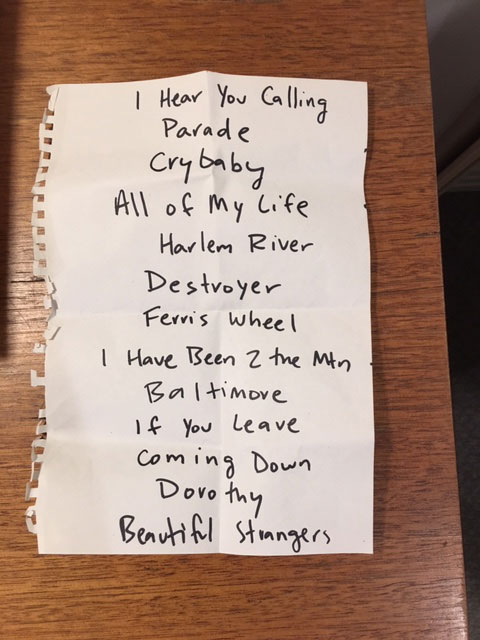 I Hear You Calling
Parade
Crybaby
All of My Life
Harlem River
Destroyer
Ferris Wheel
I Have Been 2 the Mtn
Baltimore
If You Leave
Coming Down
Dorothy
Beautiful Strangers